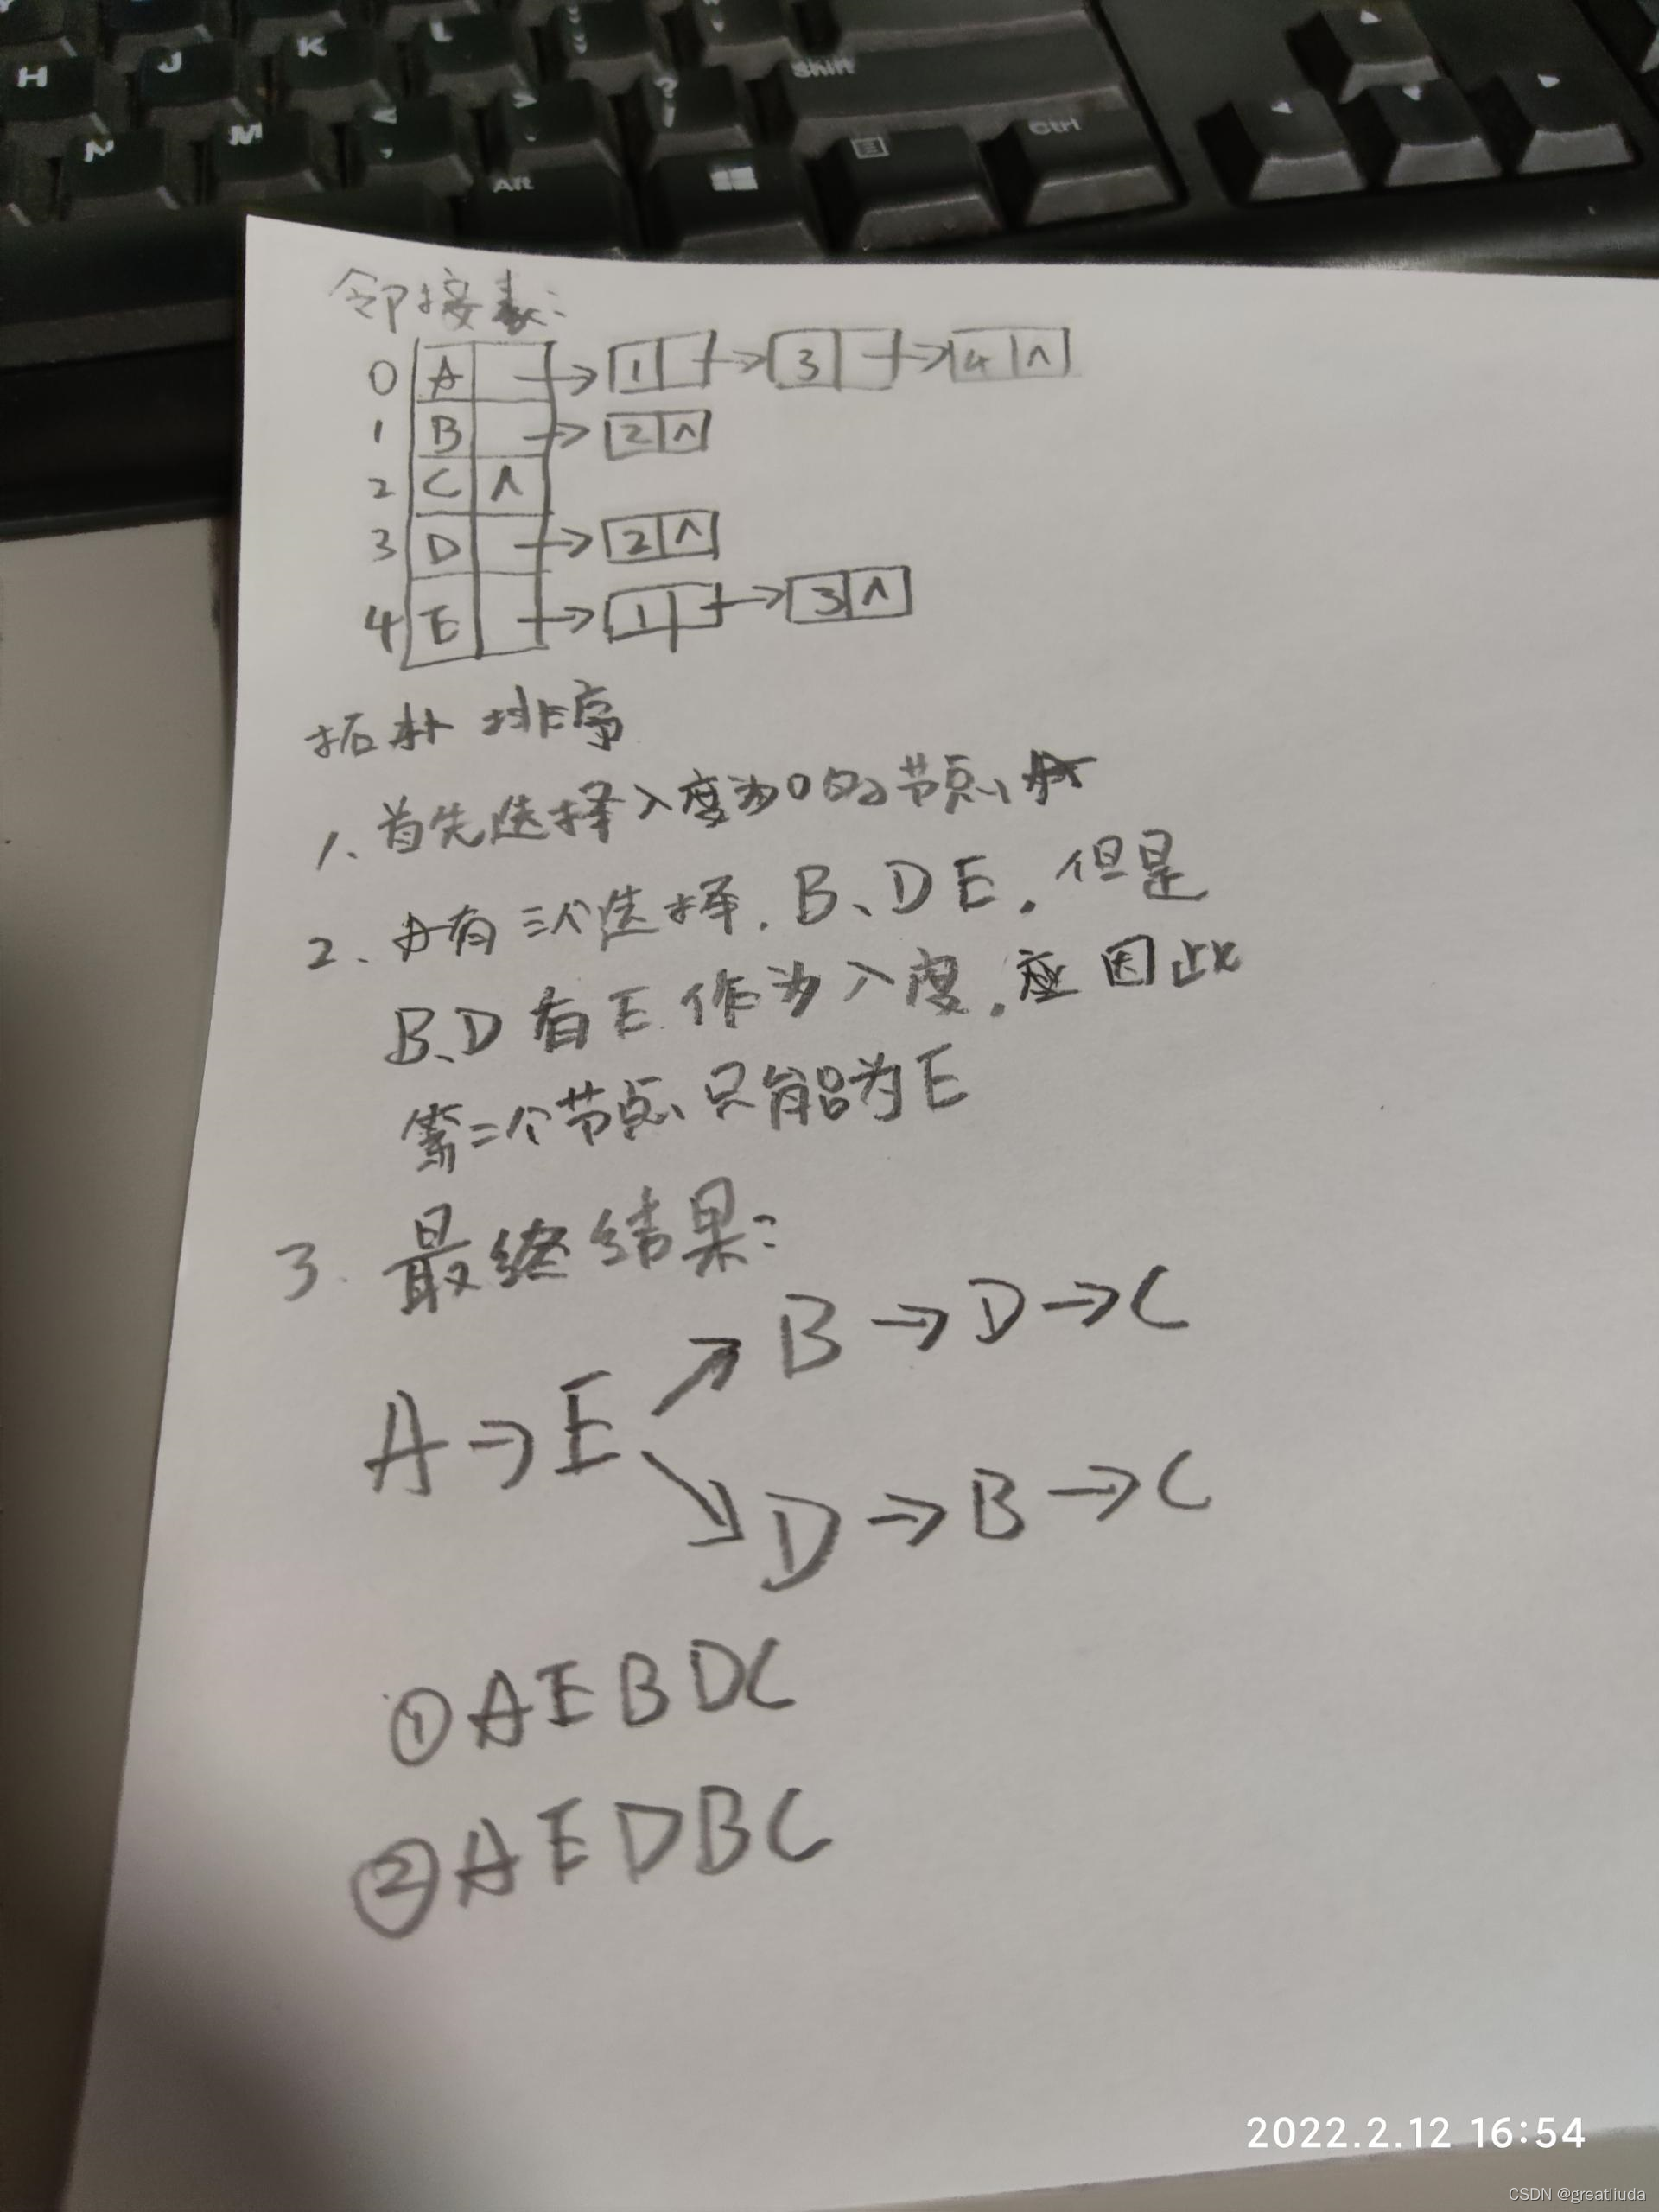 H J K L
N M < > ? / Shift
Alt Ctrl
邻接表:
0 A → 1 → 3 → 4 ∧
1 B → 2 ∧
2 C ∧
3 D → 2 ∧
4 E → 1 → 3 ∧
拓朴排序
1、首先选择入度为0的节点
2、A有三个选择.B、D E.但是
B、D有E作为入度.应因此
第二个节点只能为E
3、最终结果:
B → D → C
A → E
D → B → C
① A E B D C
② A E D B C
2022.2.12 16:54
CSDN @greatliuda